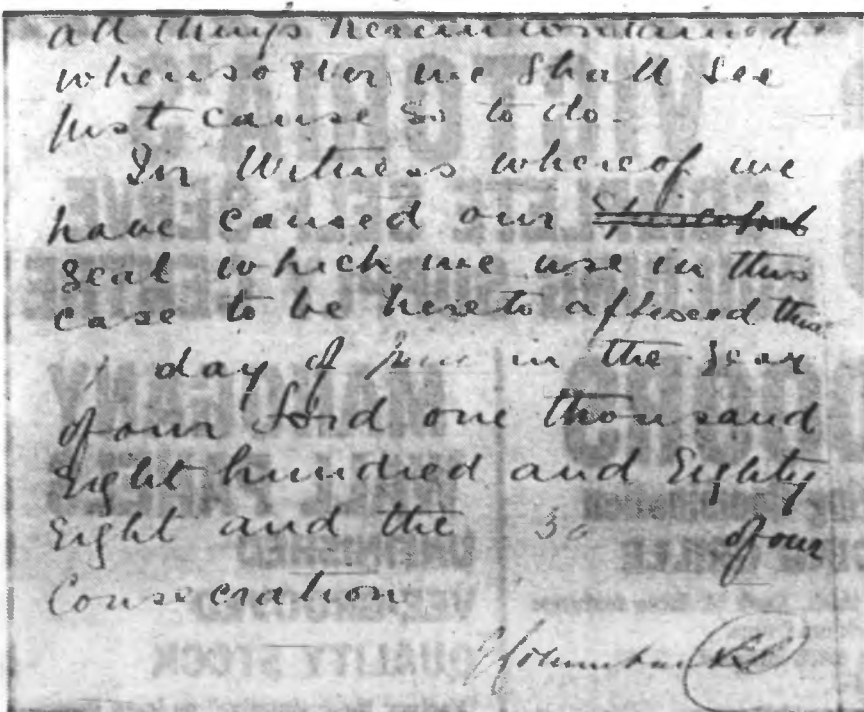 all things herein contained
whensoever we shall see
just cause so to do.
In Witness whereof we
have caused our
Seal which we use in this
case to be hereto affixed this
day of June in the Year
of our Lord one thousand
Eight hundred and Eighty
Eight and the 30 of our
Consecration